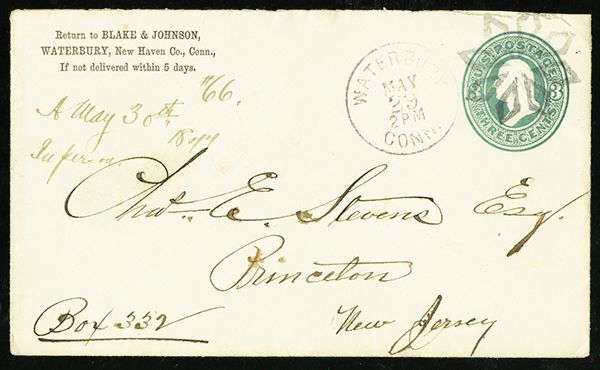 Return to BLAKE & JOHNSON,
WATERBURY, New Haven Co., Conn.,
If not delivered within 5 days.
"66.
A May 30th
WATERBURY
MAY
29
2 PM
CONN.
U.S. POSTAGE
3 3
THREE CENTS
Chas. E. Stevens Esq.
Princeton
Box 332
New Jersey